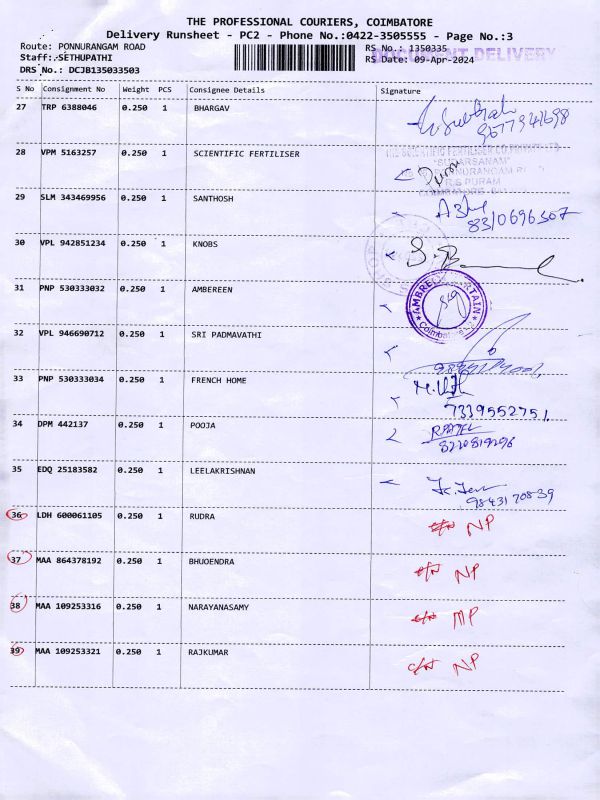 THE PROFESSIONAL COURIERS, COIMBATORE
Delivery Runsheet - PC2 - Phone No.:0422-3505555 - Page No.:3
Route: PONNURANGAM ROAD
RS No.: 1350335
DOCUMENT DELIVERY
Staff: SETHUPATHI
RS Date: 09-Apr-2024
DRS No.: DCJB135033503
S No Consignment No Weight PCS Consignee Details Signature
27 TRP 6388046 0.250 1 BHARGAV
9677941698
28 VPM 5163257 0.250 1 SCIENTIFIC FERTILISER
"SUDARSANAM"
R.S PURAM
29 SLM 343469956 0.250 1 SANTHOSH
8310696307
30 VPL 942851234 0.250 1 KNOBS
31 PNP 530333032 0.250 1 AMBEREEN
Coimbatore
32 VPL 946690712 0.250 1 SRI PADMAVATHI
33 PNP 530333034 0.250 1 FRENCH HOME
7339552751
34 DPM 442137 0.250 1 POOJA
8220819296
35 EDQ 25183582 0.250 1 LEELAKRISHNAN
9843170839
36 LDH 600061105 0.250 1 RUDRA
NP
37 MAA 864378192 0.250 1 BHUOENDRA
NP
38 MAA 109253316 0.250 1 NARAYANASAMY
MP
39 MAA 109253321 0.250 1 RAJKUMAR
NP